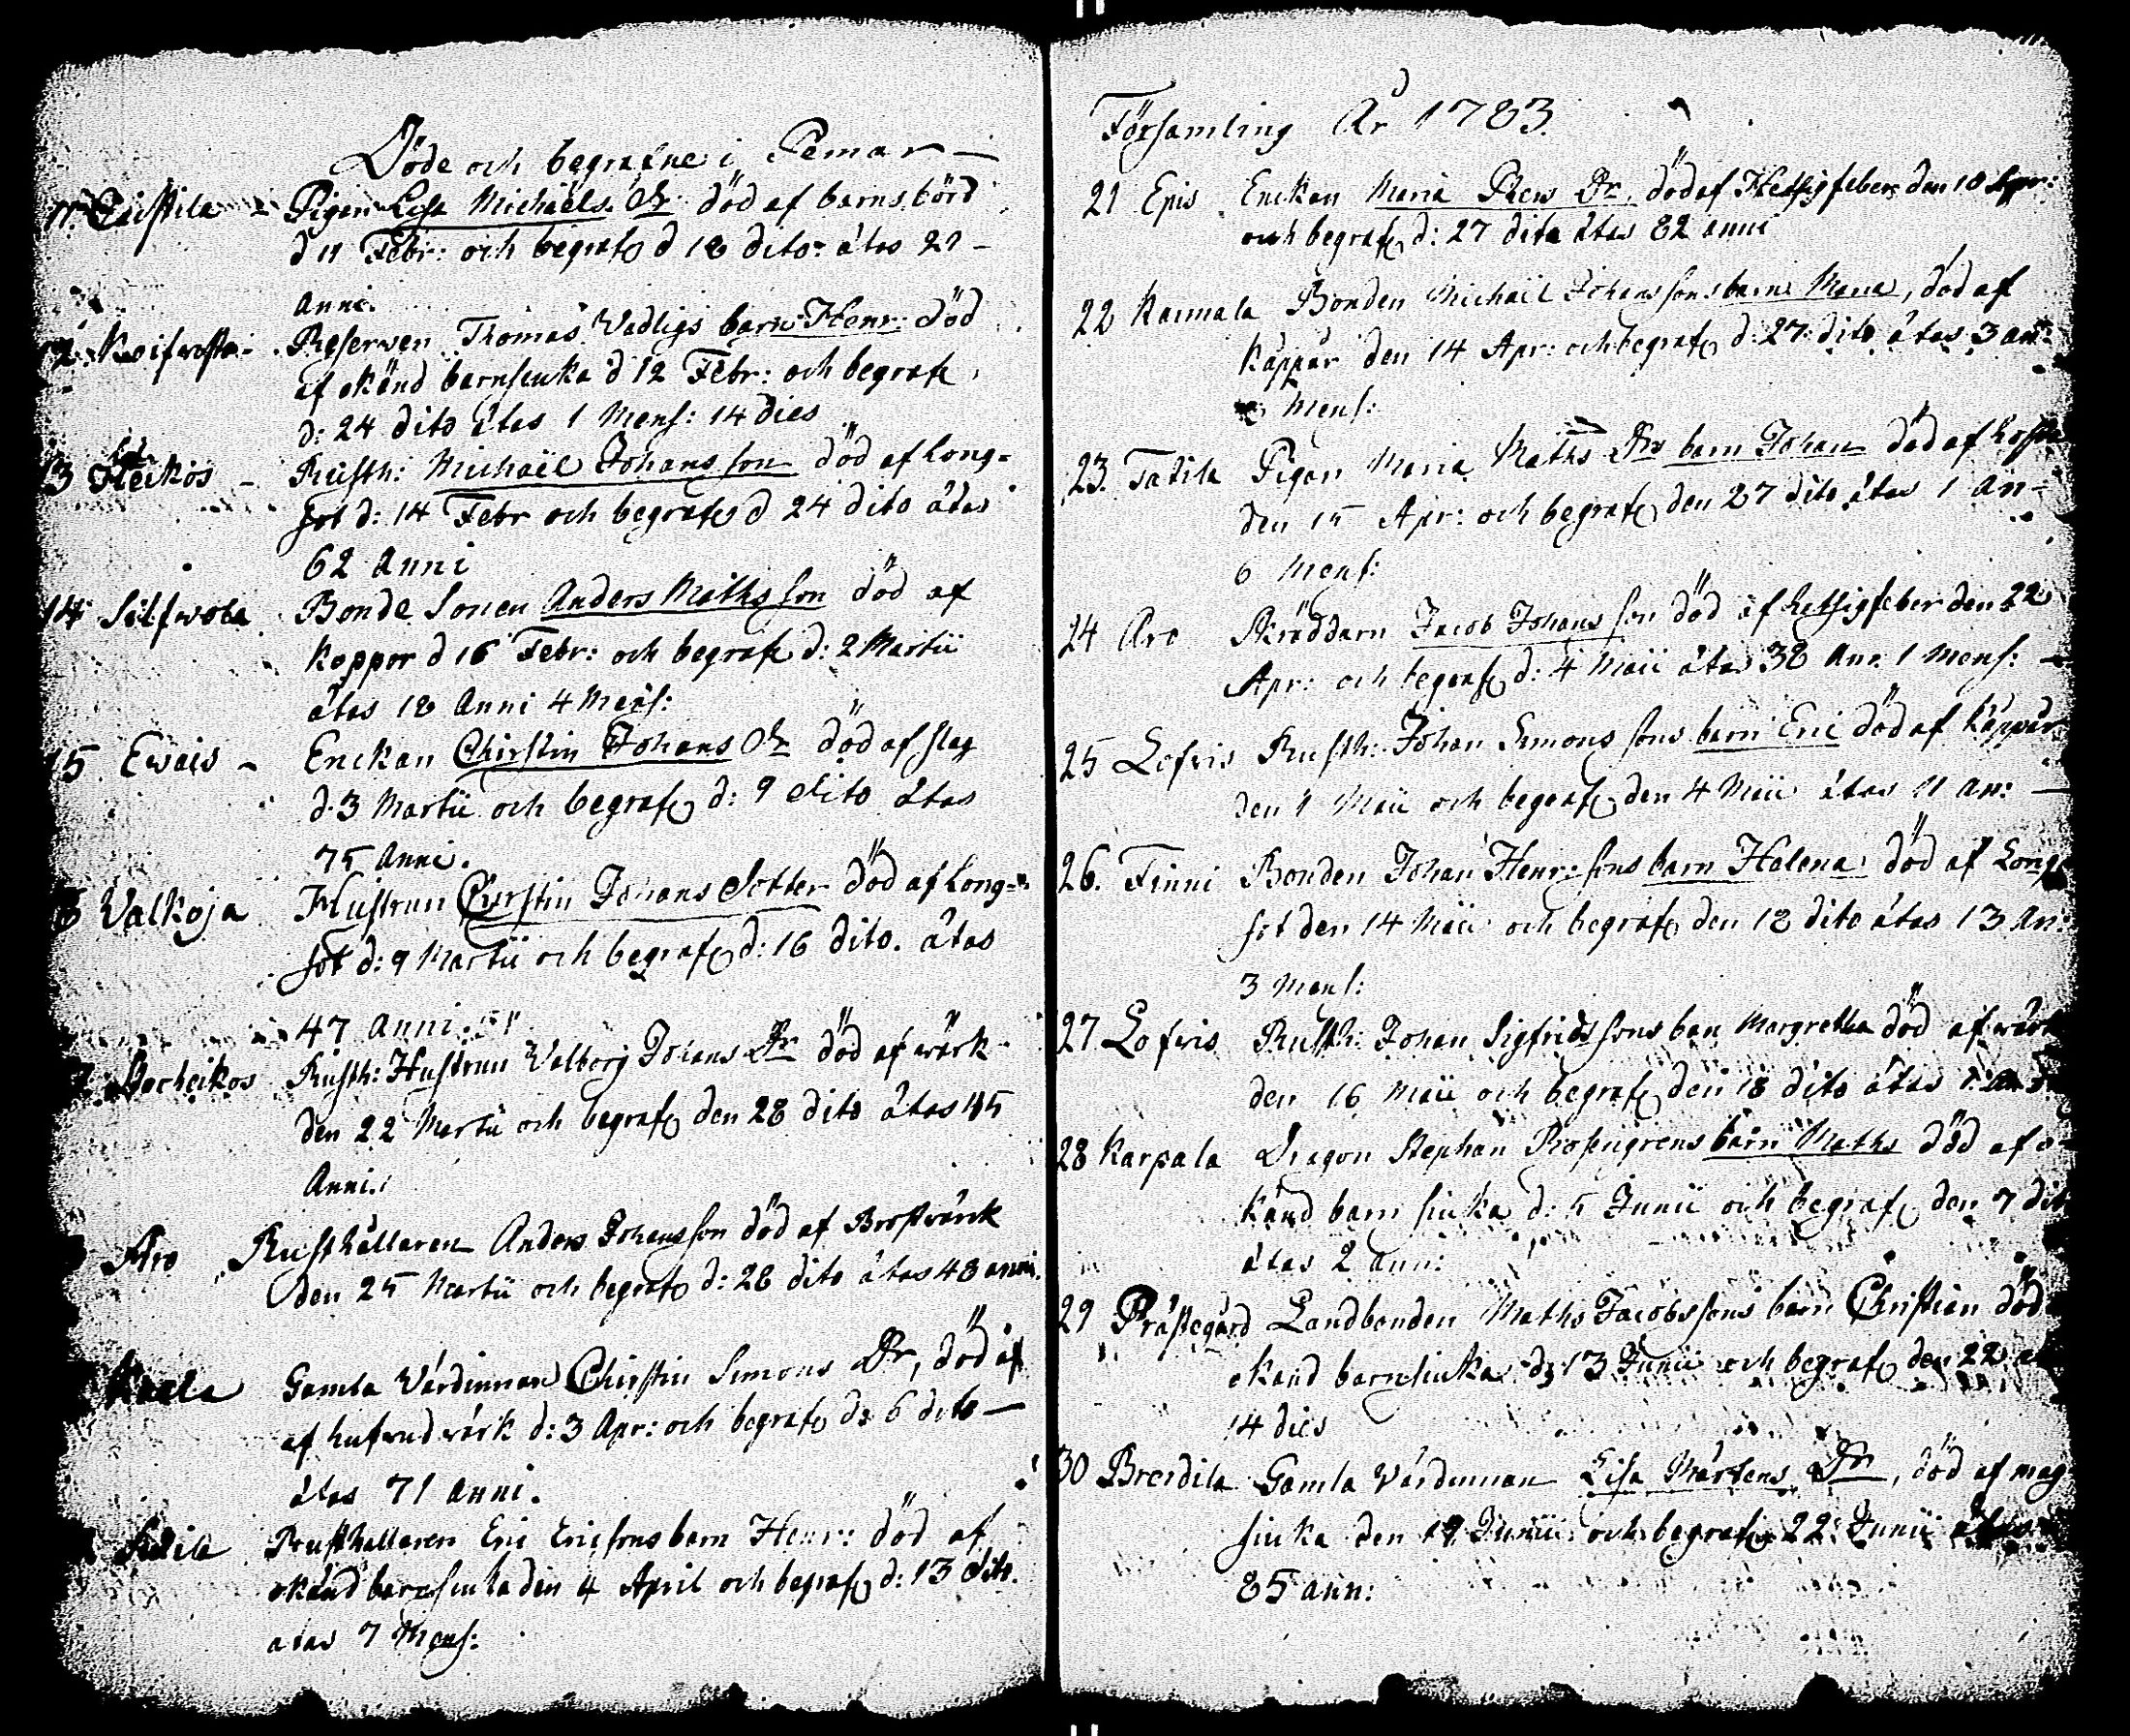 Döde och begrafne i Pemar
11. Pigan Lisa Michaels Dr död af barnsbörd
d 11 Febr: och begraf d 18 dito ätas 29
anni.
12 Koifwosta Reserven Thomas Wadligs barn Henr: död
af okänd barnsiuka d 12 Febr: och begraf
d: 24 dito ätas 1 Mens: 14 dies
13 Heikos Rusth: Michaël Johans son död af Long=
sot d: 14 Febr och begraf d 24 dito ätas
62 Anni
14 Silfwola Bonde Sonen Anders Mathsson död af
koppor d 16 Febr: och begraf d: 2 Martii
ätas 18 Anni 4 Mens:
15 Ewais Enckan Chirstin Johans Dr död af slag
d. 3 Martii och begraf d: 9 dito ätas
75 Anni.
Valkoja Hustrun Chirstin Johans dotter död af Long=
sot d: 9 Martii och begraf d: 16 dito. ätas
47 Anni.
Rusth: Hustrun Valborg Johans Dr död af wärk
den 22 Martii och begraf den 28 dito ätas 45
Anni.
Aro Rusthållaren Anders Johansson död af Bröstwärck
den 25 Martii och begraf d: 28 dito ätas 48 anni.
Gamla Värdinnan Chirstin Simons Dr, död af
af hufwudwärk d: 3 Apr: och begraf d: 6 dito
ätas 71 anni.
Rusthållaren Eric Ericsons barn Henr: död af
okänd barnsiuka den 4 April och begraf d: 13 dito.
ätas 7 Mens:
Församling År 1783.
21 Epis Enckan Maria Dr, död af Hetsigfeber den 18 Apr:
och begraf d: 27 dito ätas 82 anni
22 Karmala Bonden Michaël Johanssons barn Maria, död af
Kåppår den 14 Apr: och begraf d: 27 dito ätas 3 an:
Mens:
23. Tatila Pigan Maria Maths Drs barn Johan död af
den 15 Apr: och begraf den 27 dito ätas 1 An
6 Mens:
24 Aro Skräddarn Jacob Johans son död af hetsigfeber den 22
Apr: och begraf d: 4 Maii ätas 38 Ann. 1 Mens:
25 Lofris Rusth: Johan Simons sons barn Eric död af Kåppår
den 1 Maii och begraf den 4 Maii ätas 11 an:
26. Finni Bonden Johan Henr: sons barn Halena död af Long
sot den 14 Maii och begraf den 18 dito ätas 13 An:
3 Mens:
27 Lofris Rusth: Johan Sigfrids sons barn Margretha död af wärk
den 16 Maii och begraf den 18 dito ätas
28 Karpala Dragon Stephan barn Maths död af o
känd barn siuka d: 5 Junii och begraf den 7 dito
ätas 2 ann:
29 Prästegård Landbonden Maths Jacobssons barn Christian död
okänd barnsiuka d: 13 Junii och begraf den 22
14 dies
30 Brerdila Gamla Värdinnan Lisa Mårtens Dr, död af mag
siuka den 19 Junii och begraf 22 Junii ätas
85 ann: